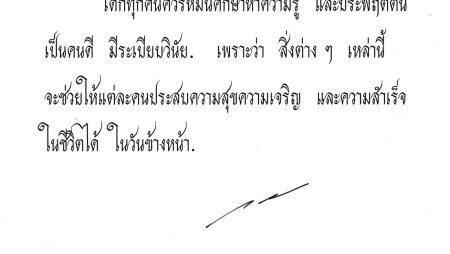 เด็กทุกคนควรหมั่นศึกษาหาความรู้ และประพฤติตน
เป็นคนดี มีระเบียบวินัย. เพราะว่า สิ่งต่าง ๆ เหล่านี้
จะช่วยให้แต่ละคนประสบความสุขความเจริญ และความสำเร็จ
ในชีวิตได้ ในวันข้างหน้า.